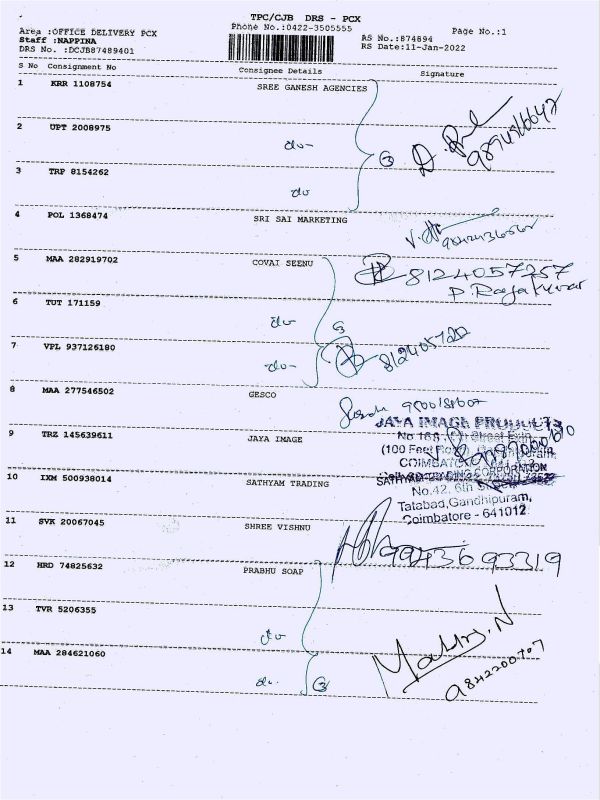 TPC/CJB DRS - PCX
Phone No.:0422-3505555
Page No.:1
Area :OFFICE DELIVERY PCX
Staff :NAPPINA
DRS No. :DCJB87489401
RS No.:874894
RS Date:11-Jan-2022
S No Consignment No Consignee Details Signature
1 KRR 1108754 SREE GANESH AGENCIES
2 UPT 2008975 do-
3 TRP 8154262 do
4 POL 1368474 SRI SAI MARKETING
5 MAA 282919702 COVAI SEENU
8124057257
6 TUT 171159 do
7 VPL 937126180 do-
8 MAA 277546502 GESCO
9 TRZ 145639611 JAYA IMAGE
JAYA IMAGE PRODUCTS
(100 Feet
10 IXM 500938014 SATHYAM TRADING
No.42, 6th Street
Tatabad,Gandhipuram,
Coimbatore - 641012
11 SVK 20067045 SHREE VISHNU
12 HRD 74825632 PRABHU SOAP
13 TVR 5206355 do
14 MAA 284621060 do.
3